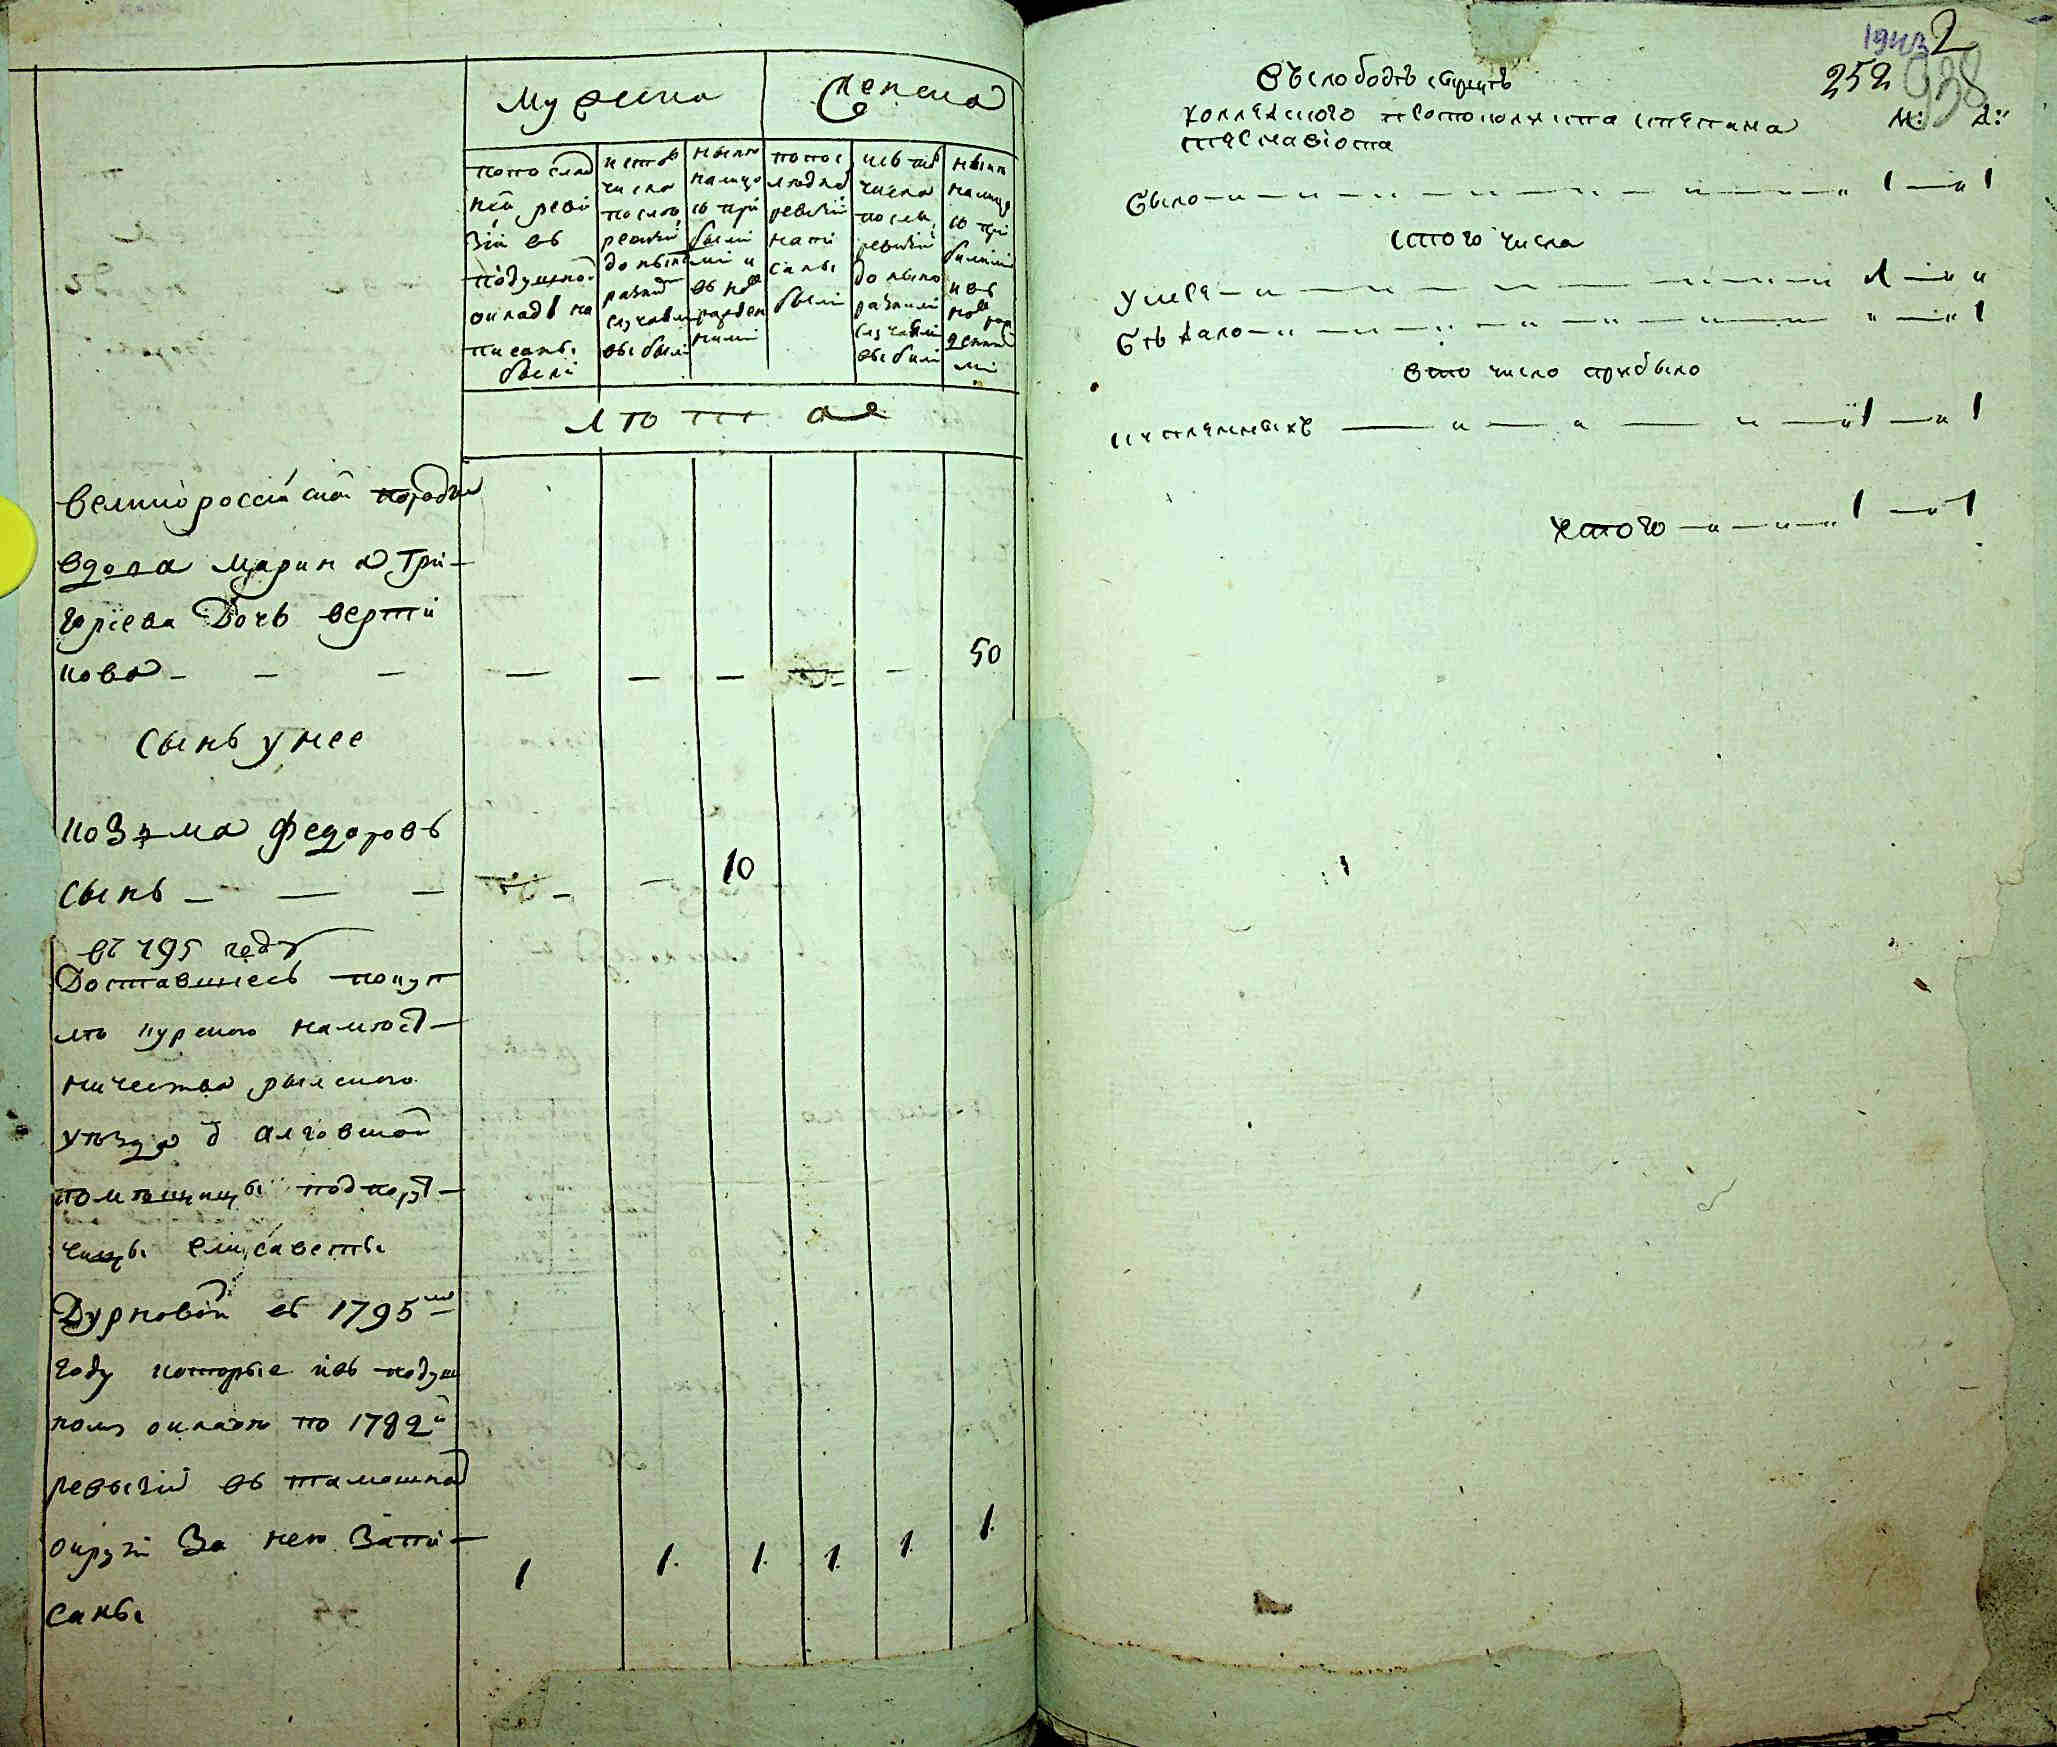 Мужеска
Женска
по послед
ней реви
зіи въ
подушной
окладъ на
писаны
были
ис того
числа
после
ревизіи
до ныне
разными
случаями
выбыли
ныне
на лицо
съ при
былыми и
въ новь
рожден
ными
по пос
ледней
ревизіи
напи
саны
были
изъ того
числа
после
ревизіи
до ныне
разными
случаями
выбыли
ныне
на лицо
съ при
былыми
и въ
новь рож
денны
ми
лета
великороссійской породы
вдова Марина Гри-
горіева Дочь верти
кова
50
сынъ у нее
козьма федоровъ
сынъ
10
въ 795 году
Доставшиесь покуп
кою курского намест-
ничества рылского
уезда д алговской
помещицы подпору-
чицы елисаветы
Дурновой въ 1795 мъ
году которые изъ подуш
ном окладе по 1782 й
ревызіи въ тамошней
округи За нею Запи-
саны
1 1. 1. 1. 1. 1.
1943 2
252 938
Въ слободе
коллежского протоколиста степана
м: д:
было 1 1
с того числа
умре 1
бежало 1
в то число прибыло
1 1
итого 1 1